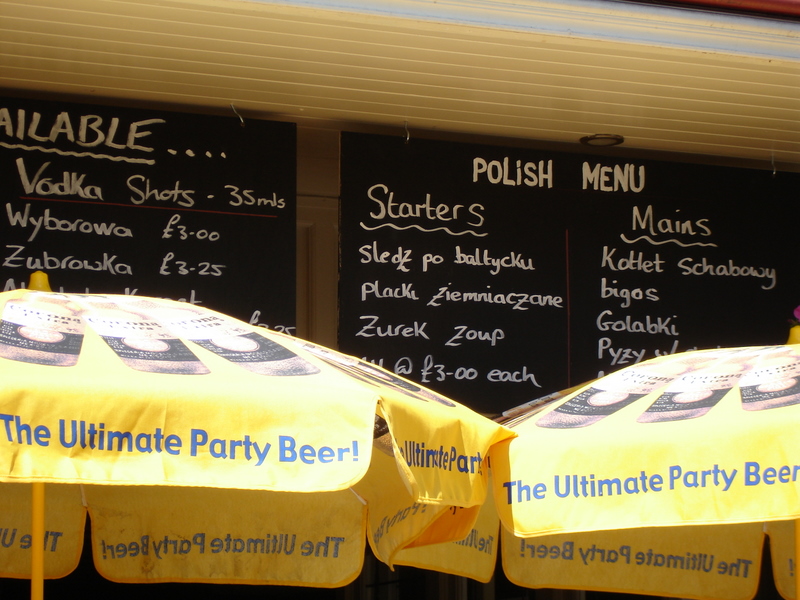 AILABLE....
Vodka Shots - 35mls
Wyborowa £3-00
Zubrowka £3-25
POLISH MENU
Starters
Sledz po baltycku
placki ziemniaczane
Zurek Zoup
@ £3-00 each
Mains
Kotlet Schabowy
bigos
Golabki
Pyzy
Corona
The Ultimate Party Beer!
Ultimate Part
The Ultimate Party Beer
The Ultimate Party Beer!
The Ultimate Party Beer!